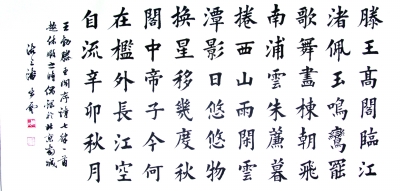 滕王高閣臨江
渚佩玉鳴鸞罷
歌舞畫棟朝飛
南浦雲朱薕暮
捲西山雨閑雲
潭影日悠悠物
換星移幾度秋
閣中帝子今何
在檻外長江空
自流辛卯秋月
王勃滕王閣序詩七律一首
於北京南城